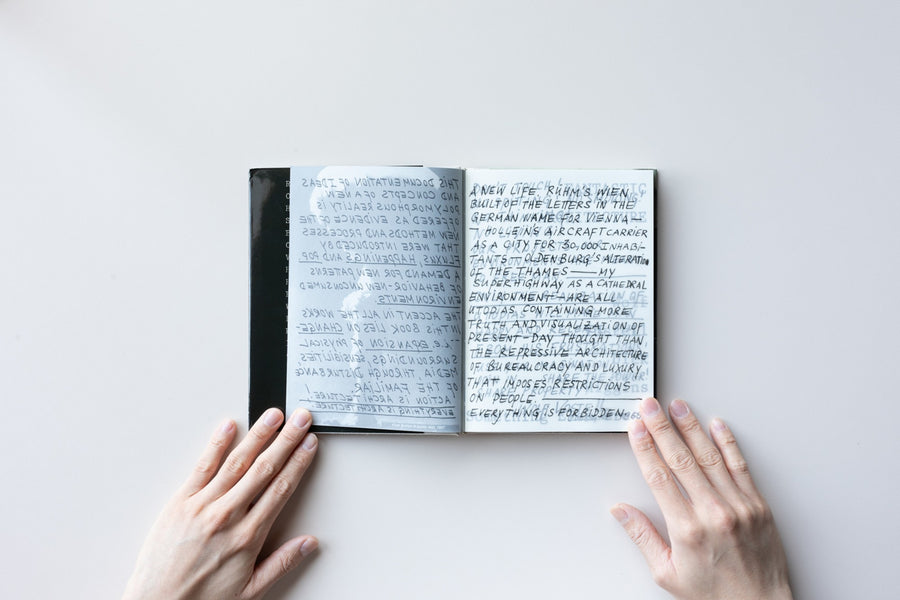 THIS DOCUMENTATION OF IDEAS
AND CONCEPTS OF A NEW
POLYMORPHOUS REALITY IS
OFFERED AS EVIDENCE OF THE
NEW METHODS AND PROCESSES
THAT WERE INTRODUCED BY
FLUXUS, HAPPENINGS AND POP.
A DEMAND FOR NEW PATTERNS
OF BEHAVIOR-NEW UNCONSUMED
ENVIRONMENTS.
THE ACCENT IN ALL THE WORKS
IN THIS BOOK LIES ON CHANGE-
I.E. EXPANSION OF PHYSICAL
SURROUNDINGS, SENSIBILITIES,
MEDIA THROUGH DISTURBANCE
OF THE FAMILIAR.
ACTION IS ARCHITECTURE!
EVERYTHING IS ARCHITECTURE!
A NEW LIFE. RÜHM'S WIEN,
BUILT OF THE LETTERS IN THE
GERMAN NAME FOR VIENNA —
— HOLLEIN'S AIRCRAFT CARRIER
AS A CITY FOR 30,000 INHABI-
TANTS — OLDENBURG'S ALTERATION
OF THE THAMES — MY
SUPERHIGHWAY AS A CATHEDRAL
ENVIRONMENT — ARE ALL
UTOPIAS CONTAINING MORE
TRUTH AND VISUALIZATION OF
PRESENT-DAY THOUGHT THAN
THE REPRESSIVE ARCHITECTURE
OF BUREAUCRACY AND LUXURY
THAT IMPOSES RESTRICTIONS
ON PEOPLE.
EVERYTHING IS FORBIDDEN